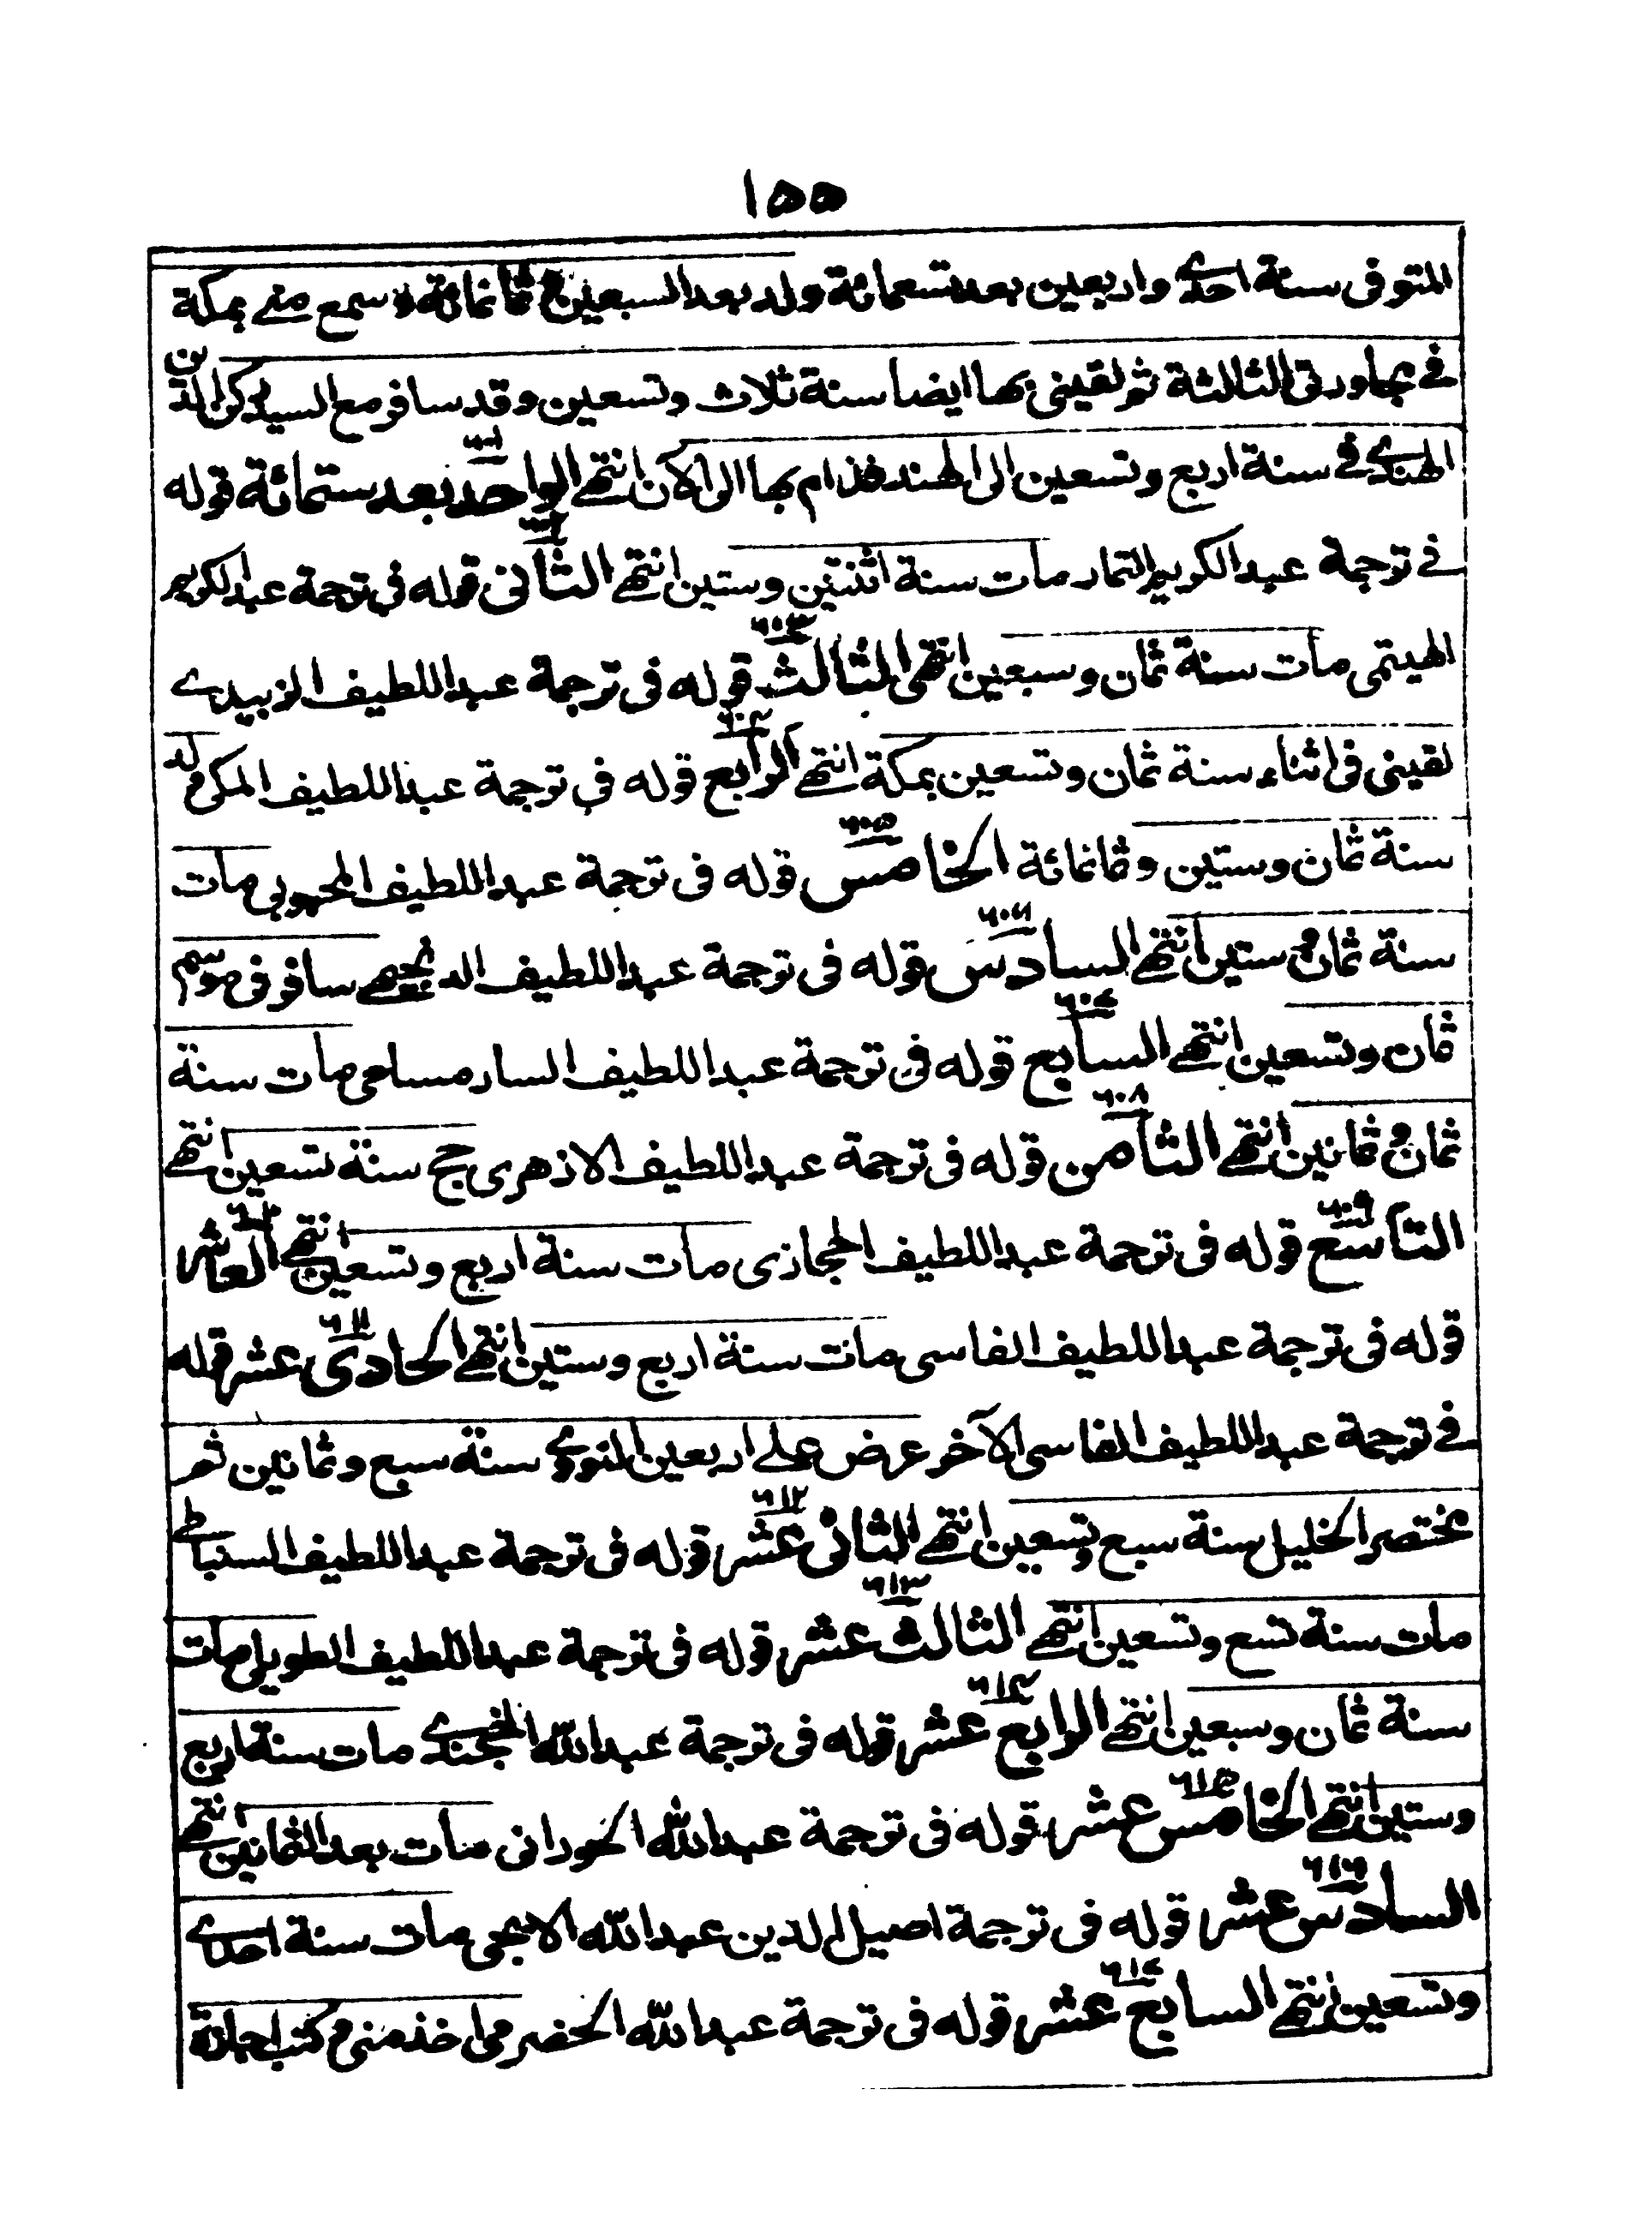 ١٥٥
المتوفى سنة احدى واربعين بعد تسعمائة ولد بعد السبعين وثمانمائة وسمع مني بمكة
في مجاورتي الثالثة ثم لقيني بها ايضا سنة ثلاث وتسعين وقد سافر مع السيد ركن الدين
الهندي في سنة اربع وتسعين الى الهند فدام بها الى الآن انتهى الواحد بعد ستمائة ٦٠١ قوله
في ترجمة عبد الكريم التمار مات سنة اثنتين وستين انتهى الثاني ٦٠٢ قوله في ترجمة عبد الكريم
الهيتمي مات سنة ثمان وسبعين انتهى الثالث ٦٠٣ قوله في ترجمة عبد اللطيف الزبيدي
لقيني في اثناء سنة ثمان وتسعين بمكة انتهى الرابع ٦٠٤ قوله في ترجمة عبد اللطيف المكي ولد
سنة ثمان وستين وثمانمائة الخامس ٦٠٥ قوله في ترجمة عبد اللطيف المحبوبي مات
سنة ثمان وستين انتهى السادس ٦٠٦ قوله في ترجمة عبد اللطيف سافر في موسم
ثمان وتسعين انتهى السابع ٦٠٧ قوله في ترجمة عبد اللطيف السارمساحي مات سنة
ثمان وثمانين انتهى الثامن ٦٠٨ قوله في ترجمة عبد اللطيف الازهري حج سنة تسعين انتهى
التاسع ٦٠٩ قوله في ترجمة عبد اللطيف الحجازي مات سنة اربع وتسعين انتهى العاشر ٦١٠
قوله في ترجمة عبد اللطيف الفاسي مات سنة اربع وستين انتهى الحادي عشر ٦١١ قوله
في ترجمة عبد اللطيف الفاسي الآخر عرض علي اربعين النووي سنة سبع وثمانين ثم
مختصر الخليل سنة سبع وتسعين انتهى الثاني عشر ٦١٢ قوله في ترجمة عبد اللطيف السنباطي
مات سنة تسع وتسعين انتهى الثالث عشر ٦١٣ قوله في ترجمة عبد اللطيف الطويلي مات
سنة ثمان وسبعين انتهى الرابع عشر ٦١٤ قوله في ترجمة عبد الله الخجندي مات سنة اربع
وستين انتهى الخامس عشر ٦١٥ قوله في ترجمة عبد الله الحوراني مات بعد الثمانين انتهى
السادس عشر ٦١٦ قوله في ترجمة اصيل الدين عبد الله الايجي مات سنة احدى
وتسعين انتهى السابع عشر ٦١٧ قوله في ترجمة عبد الله الحضرمي اخذ مني وكتب اجازة